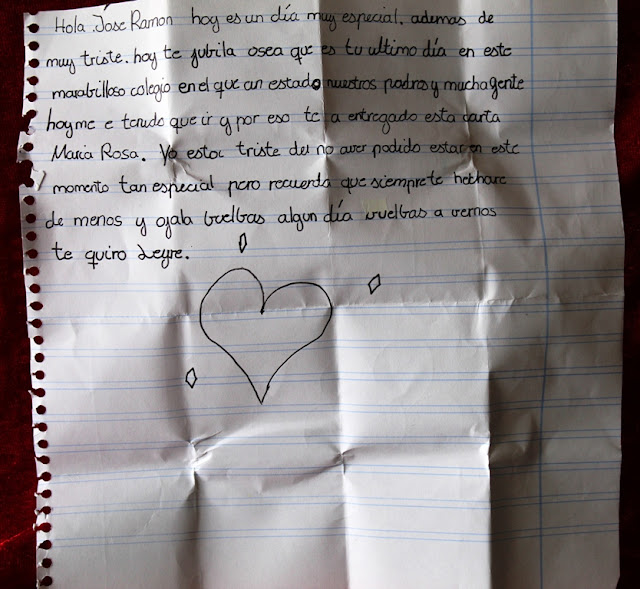 Hola Jose Ramon hoy es un día muy especial. ademas de
muy triste. hoy te jubila osea que es tu ultimo día en este
marabilloso colegio en el que an estado nuestros padres y mucha gente
hoy me e tenido que ir y por eso te a entregado esta carta
Maria Rosa. Yo estoi triste del no aver podido estar en este
momento tan especial pero recuerda que siempre te hechare
de menos y ojala buelbas algun día vuelbas a vernos
te quiro Leyre.